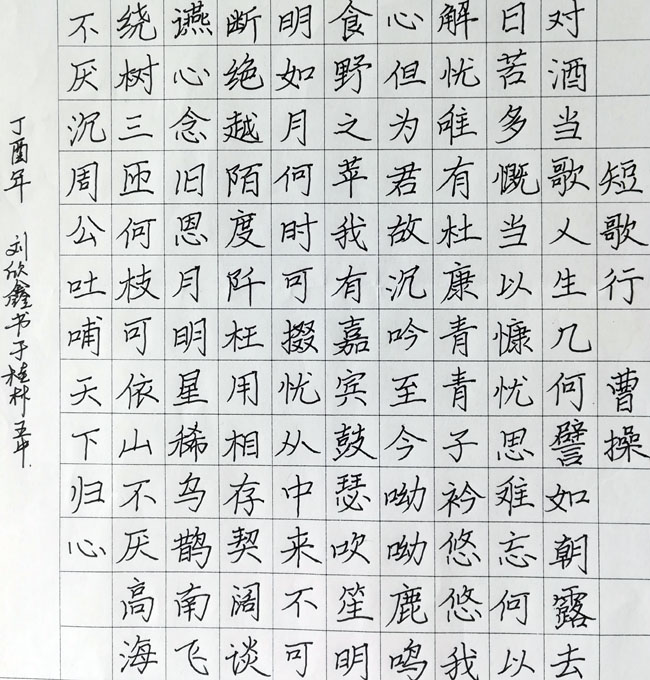 短歌行 曹操
对酒当歌人生几何譬如朝露去
日苦多慨当以慷忧思难忘何以
解忧唯有杜康青青子衿悠悠我
心但为君故沉吟至今呦呦鹿鸣
食野之苹我有嘉宾鼓瑟吹笙明
明如月何时可掇忧从中来不可
断绝越陌度阡枉用相存契阔谈
䜩心念旧恩月明星稀乌鹊南飞
绕树三匝何枝可依山不厌高海
不厌沉周公吐哺天下归心
丁酉年 刘欣鑫书于桂林五中